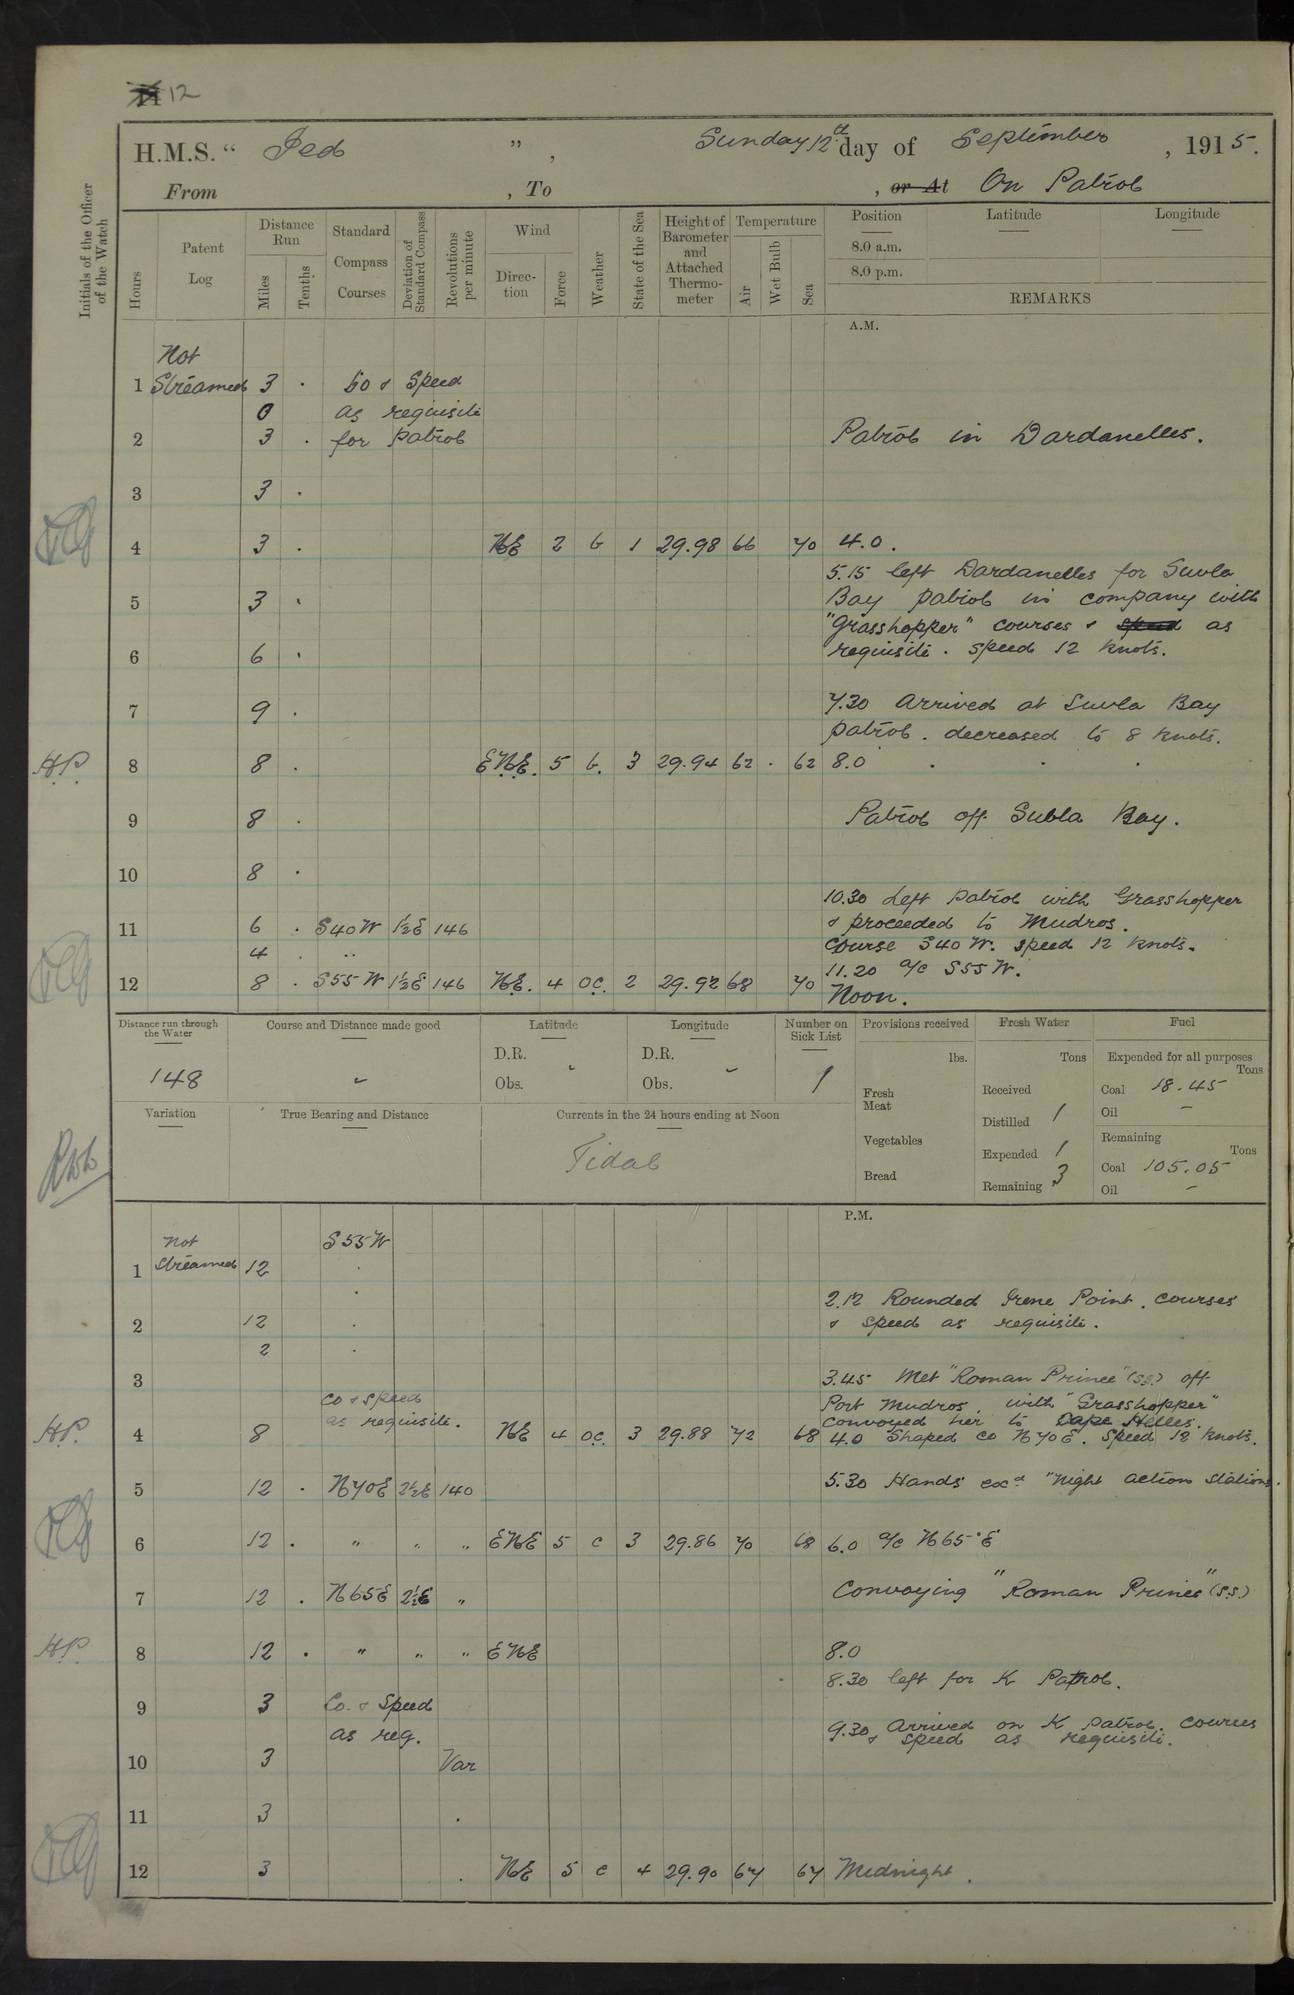 12
H.M.S. “ Jed ” , Sunday 12th day of September , 1915.
From , To , or At On Patrol
Initials of the Officer of the Watch
Hours
Patent Log
Distance Run
Miles
Tenths
Standard Compass Courses
Deviation of Standard Compass
Revolutions per minute
Wind
Direction
Force
Weather
State of the Sea
Height of Barometer and Attached Thermometer
Temperature
Air
Wet Bulb
Sea
Position Latitude Longitude
8.0 a.m.
8.0 p.m.
REMARKS
A.M.
Not
1 Streamed 3 . Co & Speed
0 as requisite
2 3 . for patrol Patrol in Dardanelles.
3 3 .
4 3 . NE 2 b 1 29.98 66 70 4.0.
5.15 left Dardanelles for Suvla
5 3 . Bay patrol in company with
"Grasshopper" courses & speed as
6 6 . requisite. speed 12 knots.
7 9 . 7.30 Arrived at Suvla Bay
patrol. decreased to 8 knots.
H.P. 8 8 . ENE. 5 b. 3 29.94 62 . 62 8.0
9 8 . Patrol off Subla Bay.
10 8 .
10.30 Left patrol with Grasshopper
11 6 . S40W 1½E 146 & proceeded to Mudros.
4 . " Course S40W. speed 12 knots.
11.20 a/c S55W.
12 8 . S55W 1½E 146 NE. 4 oc. 2 29.92 68 70 Noon.
Distance run through the Water
148
Course and Distance made good
Latitude
D.R.
Obs.
Longitude
D.R.
Obs.
Number on Sick List
1
Provisions received
lbs.
Fresh Meat
Vegetables
Bread
Fresh Water
Tons
Received
Distilled 1
Expended 1
Remaining 3
Fuel
Expended for all purposes
Tons
Coal 18.45
Oil –
Remaining
Tons
Coal 105.05
Oil –
Variation
True Bearing and Distance
Currents in the 24 hours ending at Noon
Tidal
P.M.
Not S55W
1 Streamed 12
2.12 Rounded Irene Point. courses
2 12 & speed as requisite.
2
3 3.45 Met "Roman Prince" (s.s.) off
Co & speed Port Mudros, with "Grasshopper"
as requisite. convoyed her to Cape Helles.
H.P. 4 8 NE 4 oc. 3 29.88 72 68 4.0 Shaped co N70E. Speed 12 knots.
5 12 . N70E 2½E 140 5.30 Hands exd "Night action stations.
6 12 . " " " ENE 5 c 3 29.86 70 68 6.0 a/c N65°E
7 12 . N65E 2½E " Convoying "Roman Prince" (s.s.)
H.P. 8 12 . " " " ENE 8.0
8.30 left for K Patrol.
9 3 Co. & Speed
as reg. 9.30 Arrived on K patrol. courses
& speed as requisite.
10 3 Var
11 3 .
12 3 . NE 5 c 4 29.90 67 67 Midnight.